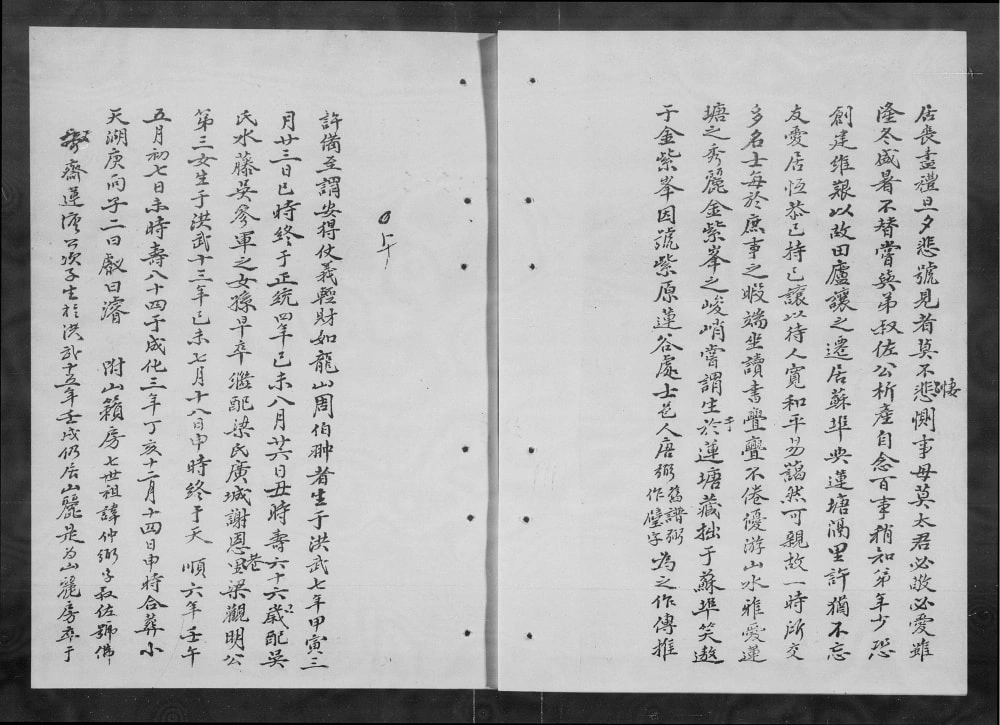 居喪盡禮旦夕悲號見者莫不悲惻悽事母莫太君必敬必愛雖
隆冬盛暑不替嘗與弟叔佐公析產自念百事稍知弟年少恐
創建維艱以故田廬讓之遷居蘇埠與蓮塘隔里許猶不忘
友愛居恆恭已持己讓以待人寬和平易藹然可親故一時所交
多名士每於庶事之暇端坐讀書亹亹不倦優游山水雅愛蓮
塘之秀麗金紫峯之峻峭嘗謂生於于蓮塘藏拙于蘇埠笑遨
于金紫峯因號紫原蓮谷處士邑人唐弼舊譜弼作璧字為之作傳推
𠁅
許備至謂安得仗義輕財如龍山周伯翀者生于洪武七年甲寅三
月廿三日巳時終于正統四年已未八月廿六日丑時壽六十六歲配吳
氏水藤吳參軍之女孫早卒繼配梁氏廣城謝恩里巷梁觀明公
第三女生于洪武十三年已未七月十八日申時終于天順六年壬午
五月初七日未時壽八十四于成化三年丁亥十二月十四日申時合葬小
天湖庚向子二曰獻曰濬 附山麓房七世祖諱仲弼字叔佐號佛
齋蓮濱公次子生於洪武十五年壬戌仍居山麗是為山麗房卒于